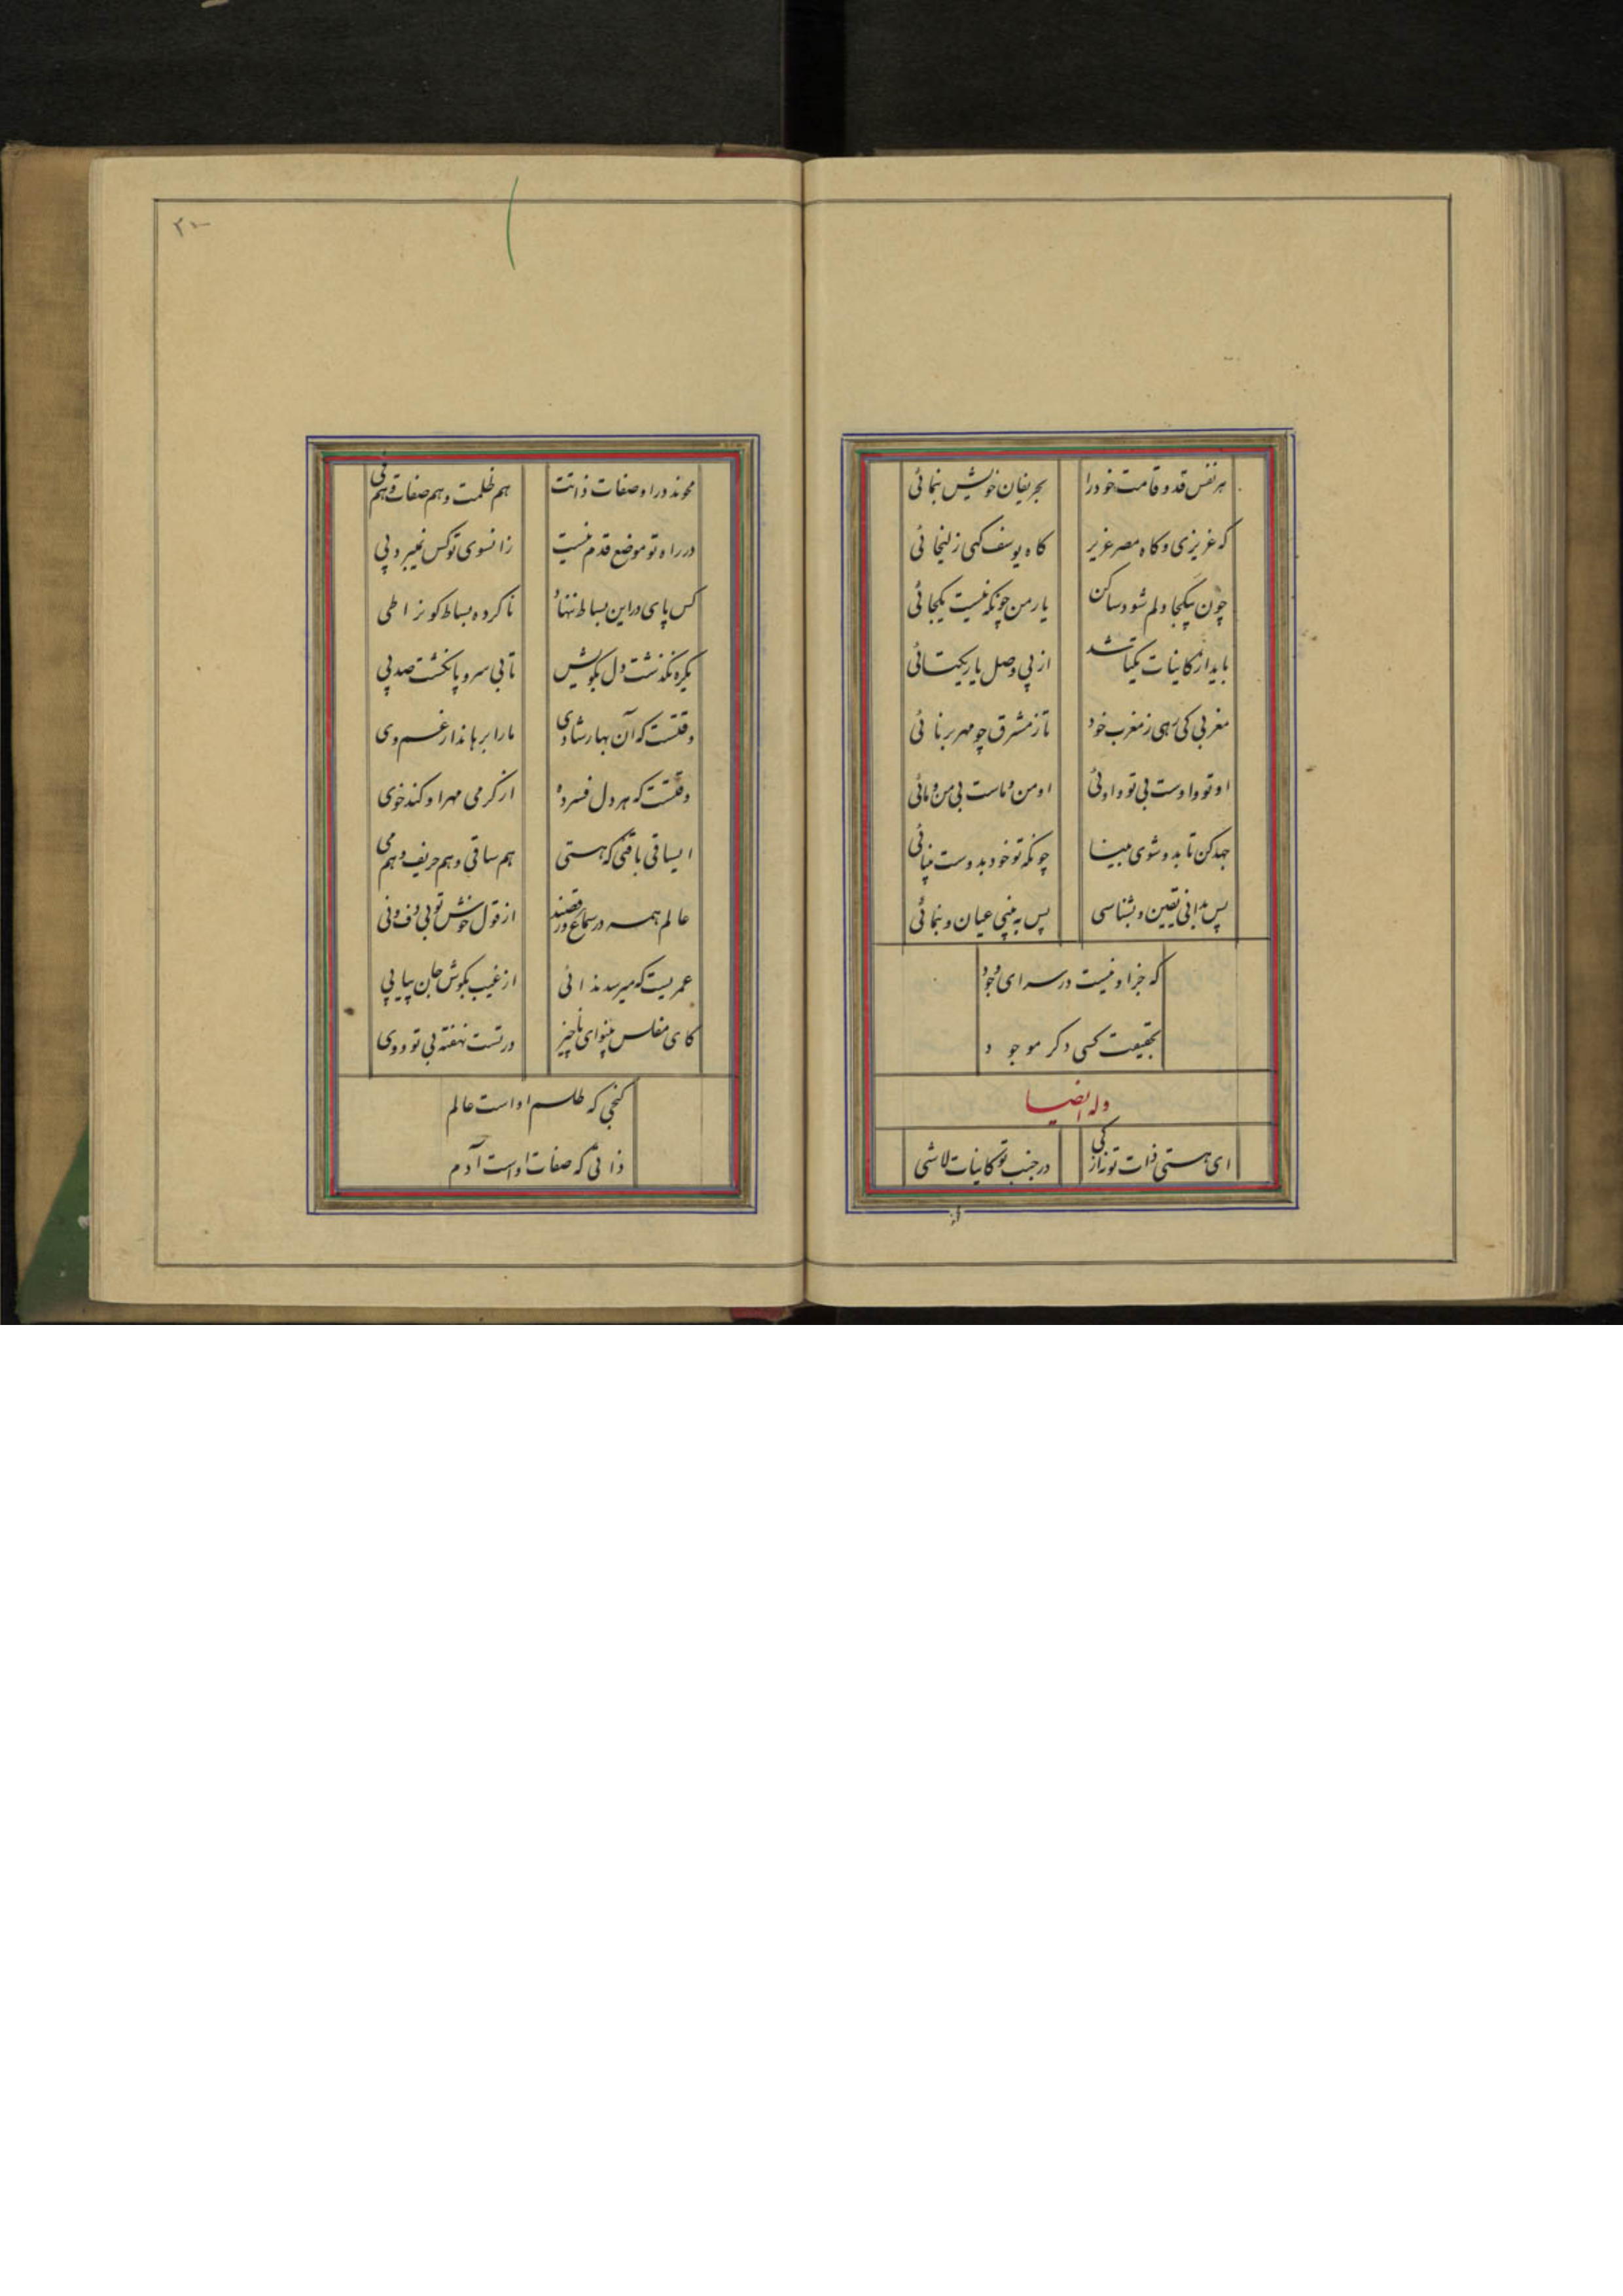 هر نفس قد و قامت خود را
بحریفان خویش بنمائی
که عزیزی و کاه مصر عزیز
کاه یوسف کهی زلیخائی
چون بیکجا دلم شود ساکن
یار من چونکه نیست یکجائی
باید از کاینات یکتا شد
از پی وصل یار یکتائی
مغربی کی رهی ز مغرب خود
تا ز مشرق چو مهر بر نائی
او تو و اوست بی تو و اوئی
او من و ماست بی من و مائی
جهد کن تا بدو شوی بینا
چونکه تو خود بدوست بینائی
پس بدانی یقین و بشناسی
پس به بینی عیان و بنمائی
که جز او نیست در سرای وجود
بحقیقت کسی دکر موجود
وله ایضا
ای هستی ذات تو ز از کی
در جنب تو کاینات لاشی
۲۰
محوند در اوصفات ذاتت
هم ظلمت و هم صفات و هم فی
در راه تو موضع قدم نیست
زانسوی تو کس نمیبرد پی
کس پای در این بساط ننهاد
ناکرده بساط کونرا طی
یکره نکذشت دل بکویش
تا بی سر و پا نکشت صد پی
وقتست که آن بهار شادی
ما را برهاند از غم و دی
وقتست که هر دل فسرده
از کرمی مهر او کند خوی
ایساقی باقئی که هستی
هم ساقی و هم حریف و هم می
عالم همه در سماع و رقصند
از قول خوش تو بی دف و نی
عمریست که میرسد ندائی
از غیب بکوش جان پیاپی
کای مفلس بینوای ناچیز
در تست نهفته بی تو و وی
کنجی که طلسم او است عالم
ذاتی که صفات او است آدم